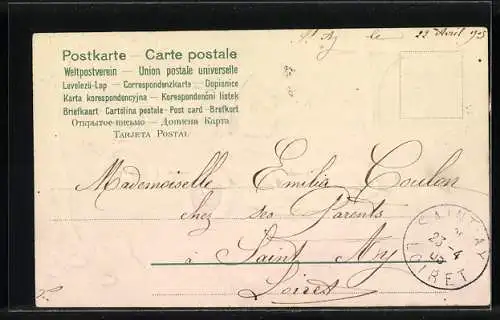 St Ay le 22 Avril 1905
Postkarte — Carte postale
Weltpostverein — Union postale universelle
Levelezü-Lap — Correspondenzkarte — Dopisnice
Karta korespondencyjna — Korespondenční lístek
Briefkaart - Cartolina postale - Post card - Brefkort
Открытое письмо — Дописна Карта
Tarjeta Postal
Mademoiselle Emilia Coulon
chez ses Parents
à Saint Ay
Loiret
SAINT-AY
23 -4
05
LOIRET